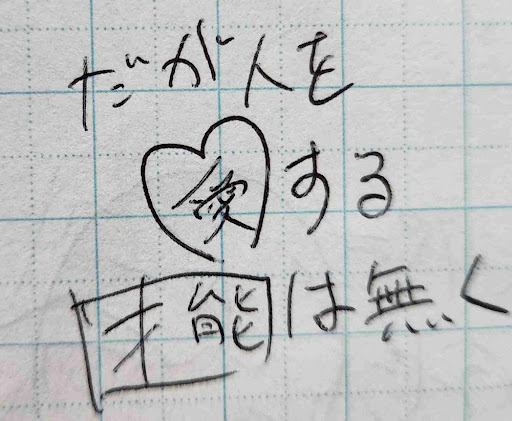 だが人を
愛する
才能は無く